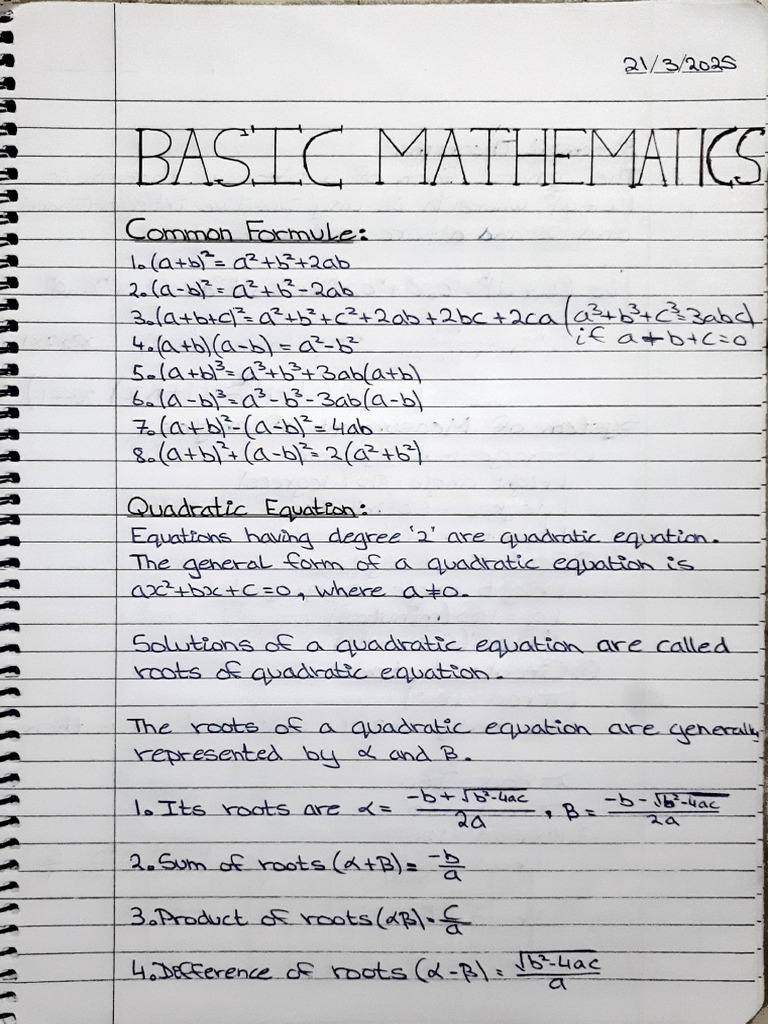 21/3/2025
BASIC MATHEMATICS
Common Formule:
1. (a+b)² = a²+b²+2ab
2. (a-b)² = a²+b²-2ab
3. (a+b+c)² = a²+b²+c²+2ab+2bc+2ca (a³+b³+c³=3abc)
if a+b+c=0
4. (a+b)(a-b) = a²-b²
5. (a+b)³= a³+b³+3ab(a+b)
6. (a-b)³= a³-b³-3ab(a-b)
7. (a+b)²-(a-b)²= 4ab
8. (a+b)²+(a-b)²= 2(a²+b²)
Quadratic Equation:
Equations having degree '2' are quadratic equation.
The general form of a quadratic equation is
ax²+bx+c=0, where a≠0.
Solutions of a quadratic equation are called
roots of quadratic equation.
The roots of a quadratic equation are generally
represented by α and β.
1. Its roots are α= (-b+√(b²-4ac))/2a , β= (-b-√(b²-4ac))/2a
2. Sum of roots (α+β)= -b/a
3. Product of roots (αβ)= c/a
4. Defference of roots (α-β)= √(b²-4ac)/a